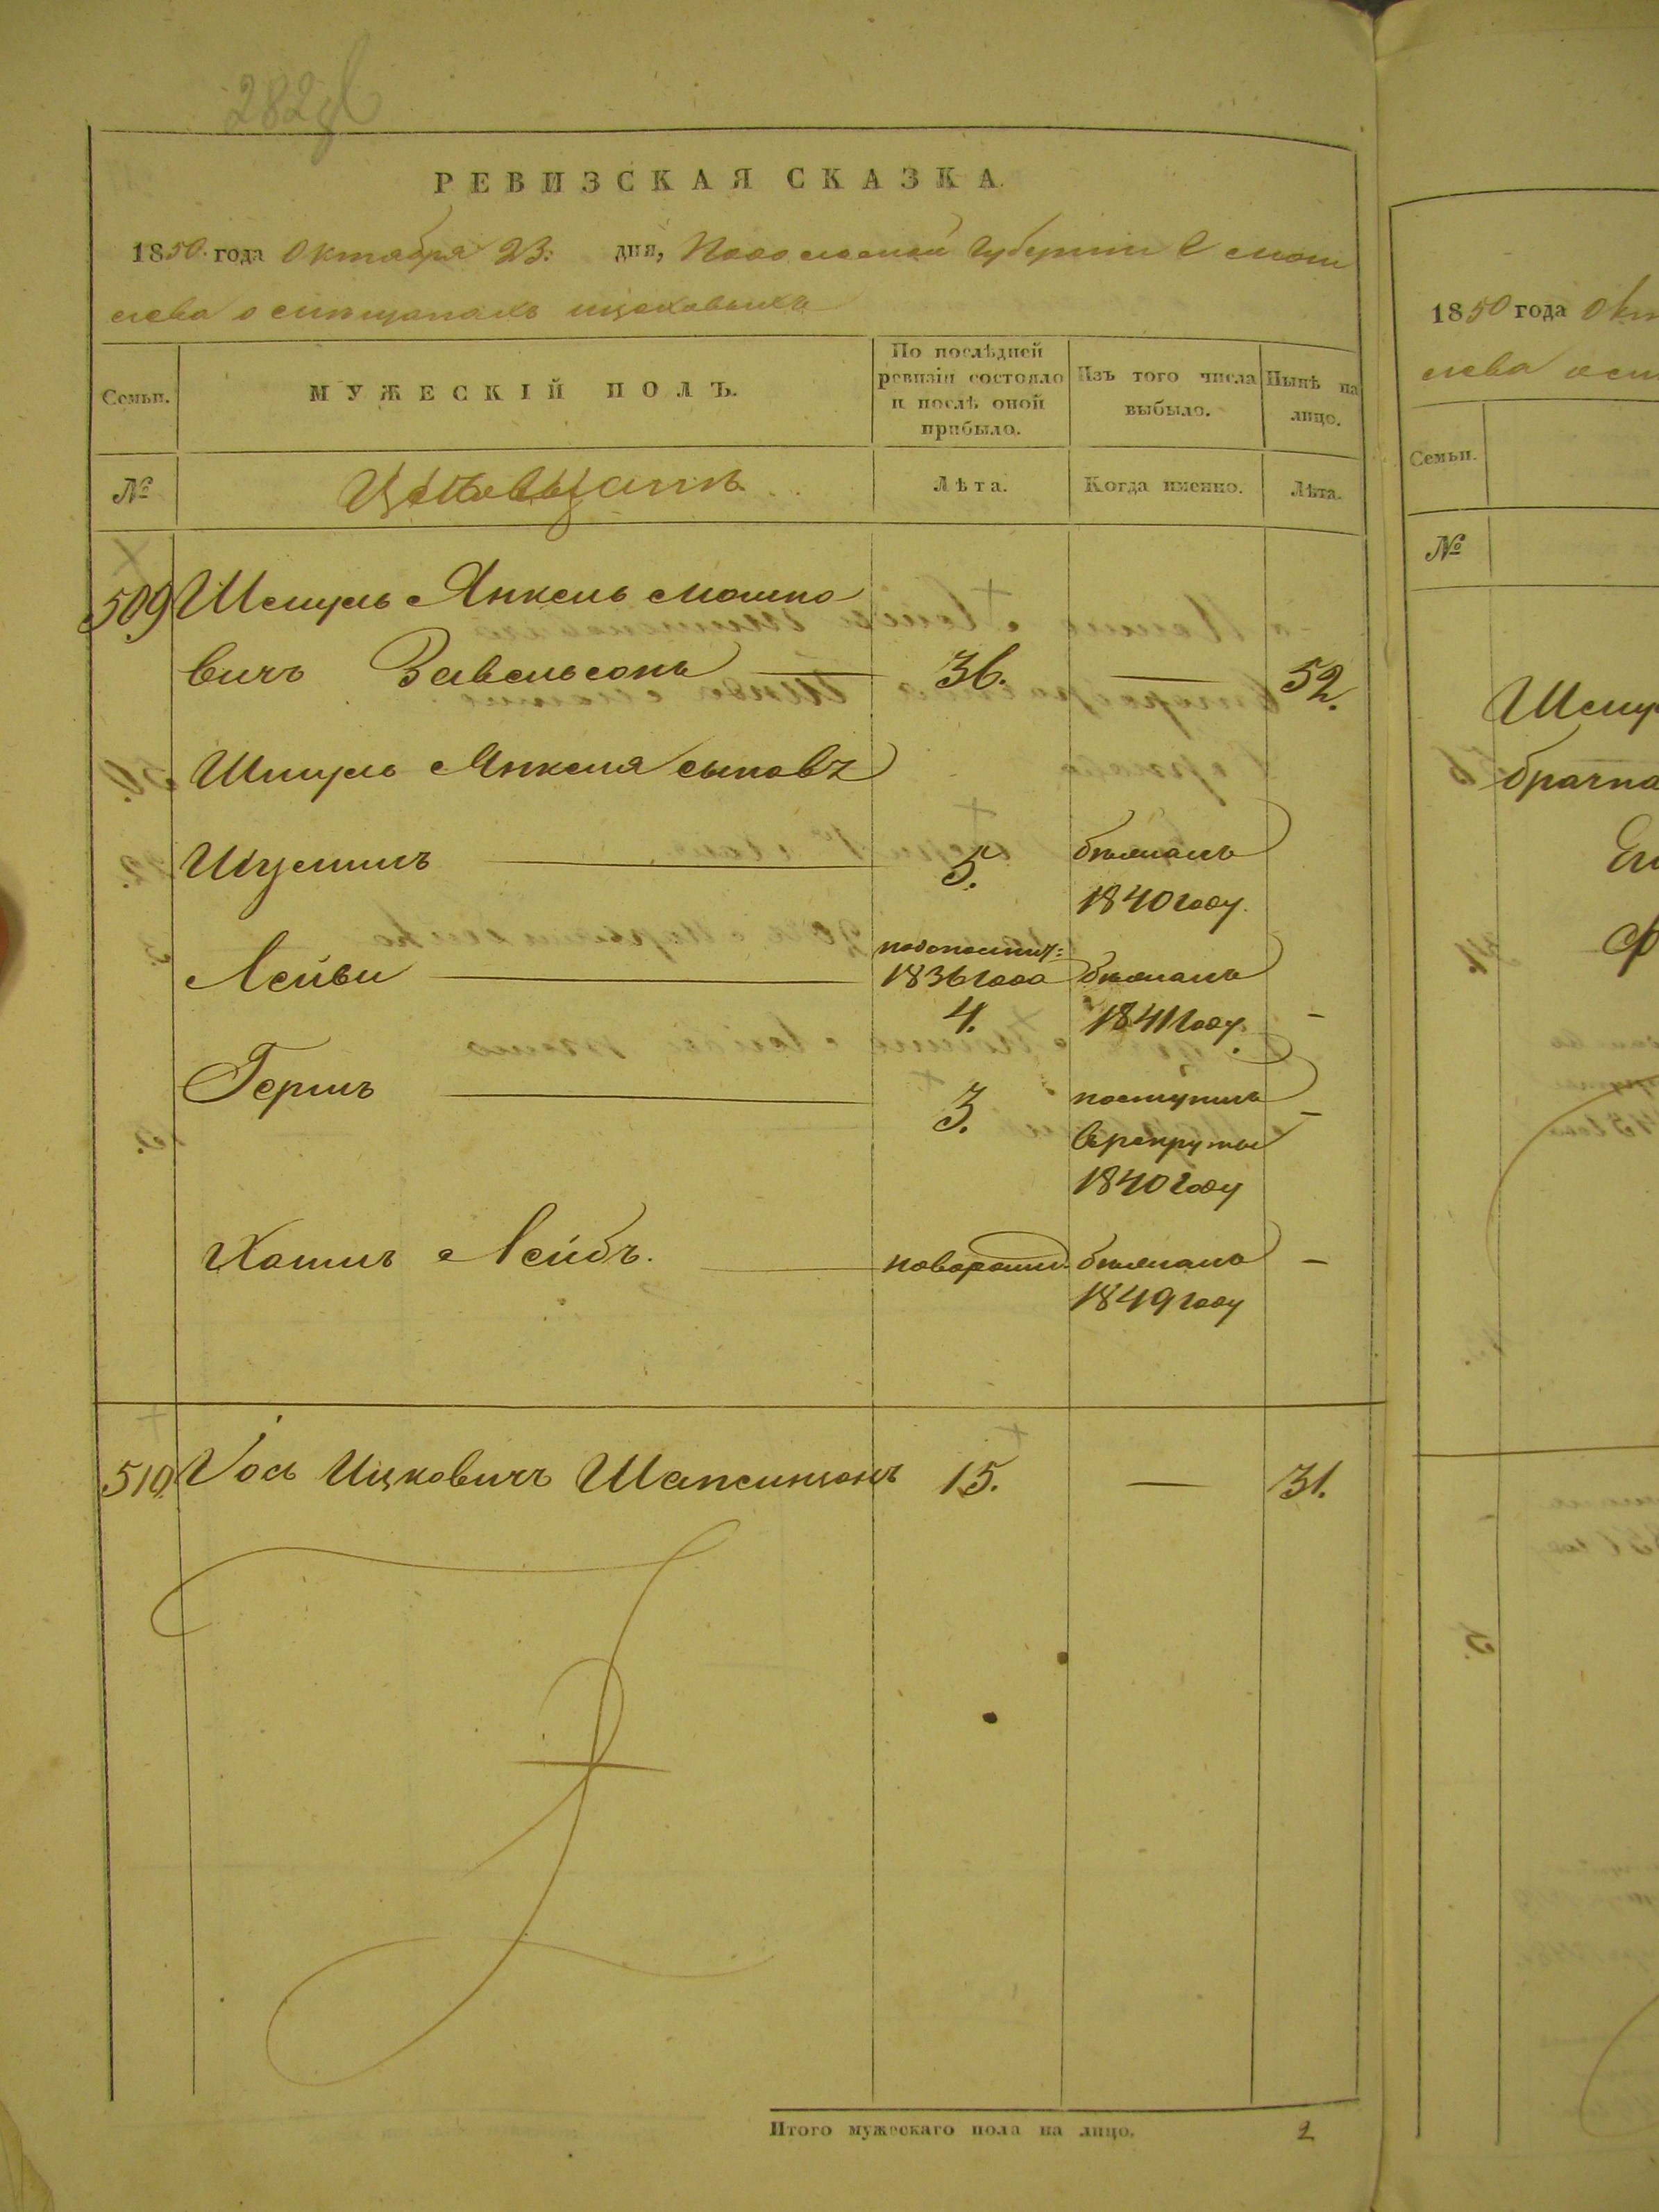 282
РЕВИЗСКАЯ СКАЗКА.
1850. года Октября 23: дня, Подольской Губернии
Семьи.
МУЖЕСКІЙ ПОЛЪ.
По послѣдней ревизіи состояло и послѣ оной прибыло.
Изъ того числа выбыло.
Нынѣ на лицо.
№
Лѣта.
Когда именно.
Лѣта.
509 Шмуль Янкель Мошко
вичъ Завельсонъ 36. — 52.
Шмуль Янкеля сыновъ
5. бѣжалъ
1840 году.
Лейви 1836 года бѣжалъ
4. 1841 году. –
Гершъ 3. поступилъ –
в рекруты
1840 году
Хаимъ Лейбъ. новорожд. бѣжалъ –
1849 году
510. Іось Ицковичъ Шапсинзонъ 15. — 31.
Итого мужескаго пола на лицо. 2
1850 года Окт
Семьи.
№
Шмул
брачна